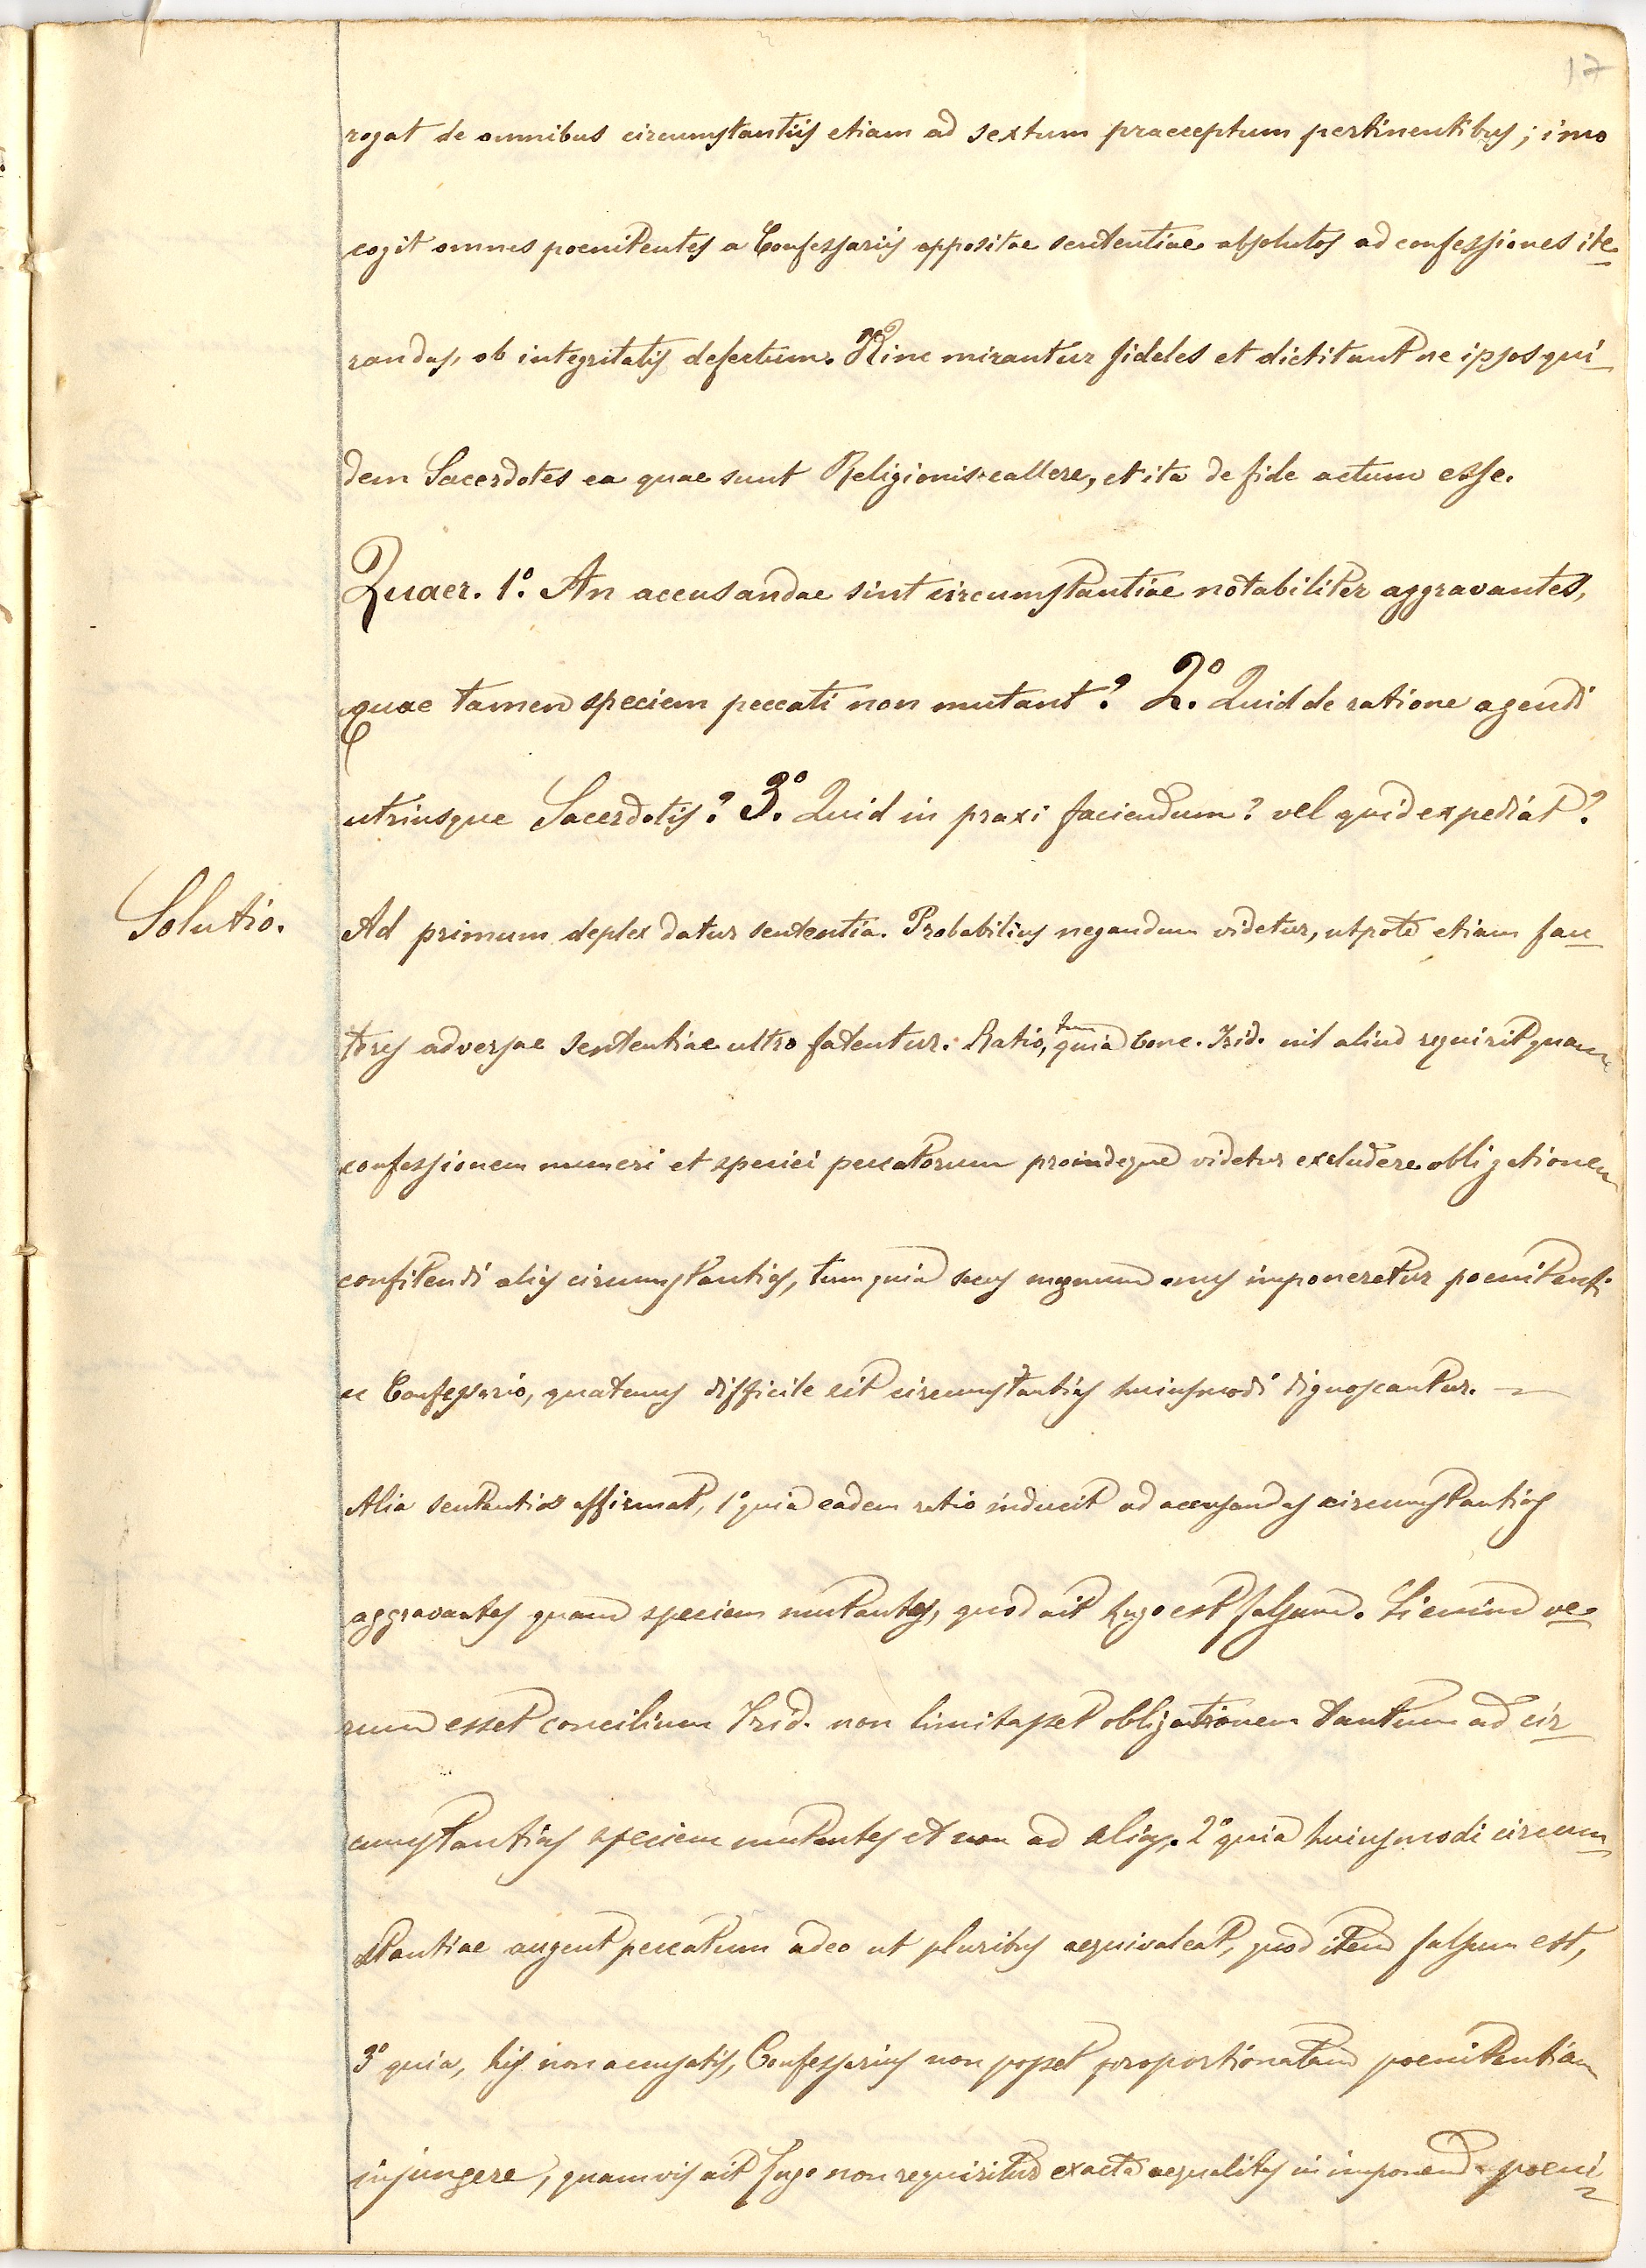 17
rogat de omnibus circumstantiis etiam ad sextum praeceptum pertinentibus; imo
cogit omnes poenitentes a Confessariis oppositae sententiae absolutos ad confessiones ite
randas, ob integritatis defectum. Hinc mirantur fideles et dictitant ne ipsos qui
dem Sacerdotes ea quae sunt Religionis callere, et ita de fide actum esse.
Quaer. 1.° An accusandae sint circumstantiae notabiliter aggravantes,
quae tamen speciem peccati non mutant? 2.° Quid de ratione agendi
utriusque Sacerdotis? 3.° Quid in praxi faciendum? vel quid expediat?
Solutio.
Ad primum duplex datur sententia. Probabilius negandum videtur, utpote etiam fau
tores adversae sententiae ultro fatentur. Ratio, tum quia Conc. Trid. nil aliud requirit quam
confessionem numeri et speciei peccatorum proindeque videtur excludere obligationem
confitendi alias circumstantias, tum quia secus magnum onus imponeretur poenitenti
ac Confessario, quatenus difficile sit circumstantias huiusmodi dignoscantur.
Alia sententia affirmat, 1° quia eadem ratio inducit ad accusandas circumstantias
aggravantes quam speciem mutantes, quod ait Lugo est falsum. Si enim ve
rum esset concilium Trid. non limitasset obligationem tantum ad cir
cumstantias speciem mutantes et non ad alias. 2° quia huiusmodi circum
stantiae augent peccatum adeo ut pluribus aequivaleat, quod item falsum est,
3° quia, his non accusatis, Confessarius non posset proportionatam poenitentiam
injungere, quamvis ait Lugo non requiritur exacta aequalitas in imponenda poeni